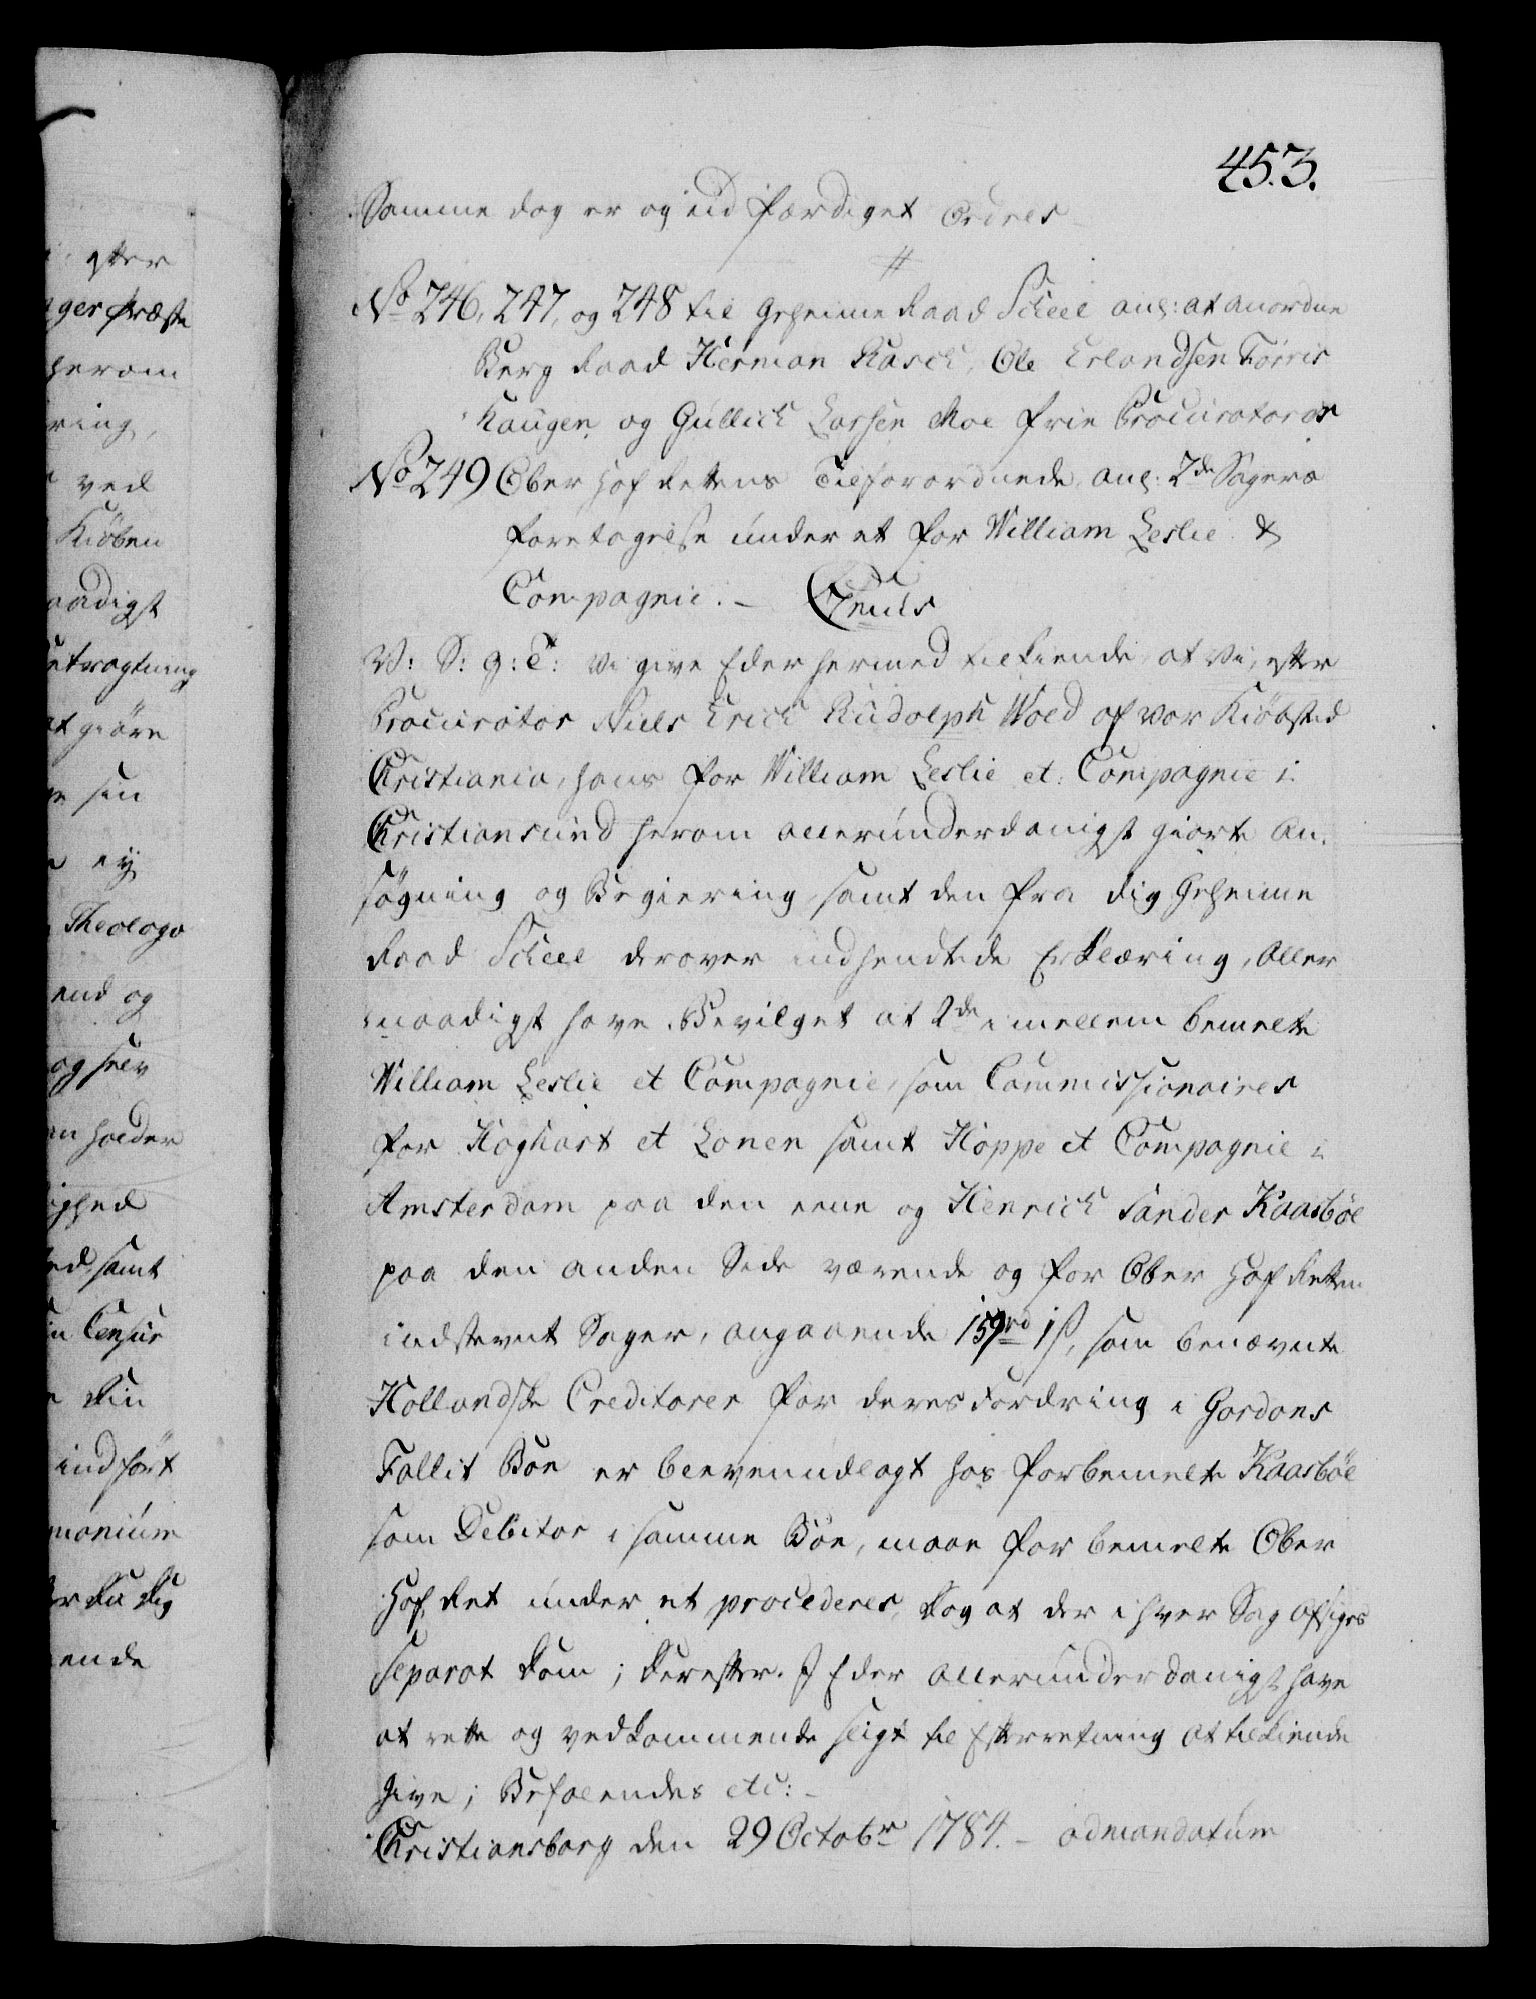 453.
Samme dag er og ud færdiget Ordres
No 246, 247, og 248 til Geheime Raad Scheel ang: at anordne
Berg Raad Herman Rasch, Ole Erlandsen Torris
Haugen og Gullich Larsen Moe frie Procuratorer
No 249 Ober Hof Rettens Tilforordnede, ang: 2de Sagers
foretagelse under et for William Leslie &
Compagnie. - Genus
V: S: G: T: Vi give Eder hermed tilkiende, at Vi, efter
Procurator Niels Erich Rudolph Wold af vor Kiøbsted
Christiania, hans for William Leslie et Compagnie i
Christiansund herom allerunderdanigst giorte An-
søgning og Begiering, samt den fra dig Geheime
Raad Scheel derover indsendtede Erklæring, Aller
naadigst have Bevilget at 2de imellem bemelte
William Leslie et Compagnie, som Commissionaires
for Hoghart et Lonen samt Hoppe et Compagnie i
Amsterdam paa den eene og Henrich Sander Kaasbøe
paa den anden Side værende og for Ober Hof Retten
indstevnt Sager, angaaende 159rd 1ß, som benævnte
Hollandske Creditorer for deres Fordring i Gordons
Fallit Boe er bleven udlagt hos forbemelte Kaasbøe
som Debitor i samme Boe, maae for bemelte Ober
Hof Ret under et procederes, dog at der i hver Sag afsiges
separat Dom; Derefter I Eder allerunderdanigst have
at rette og vedkommende sligt til Efterretning at tilkiende
give; Befalendes etc: -
Christiansborg den 29 Octobr 1784. - admandatum
efter
ger Præste
herom
ring,
ved
Kiøben
naadigst
etragtning
at giøre
sin
ey
Theologo
end og
og selv
holder
ighed
ed, samt
Censur
din
indført
monium
du dig
ende